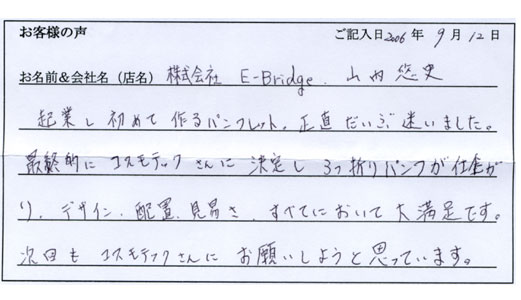 お客様の声 ご記入日2006年 9月12日
お名前&会社名（店名） 株式会社 E-Bridge. 山内悠史
起業し初めて作るパンフレット。正直だいぶ迷いました。
最終的にコスモテックさんに決定し3つ折りパンフが仕上が
り、デザイン、配置、見易さ、すべてにおいて大満足です。
次回もコスモテックさんにお願いしようと思っています。